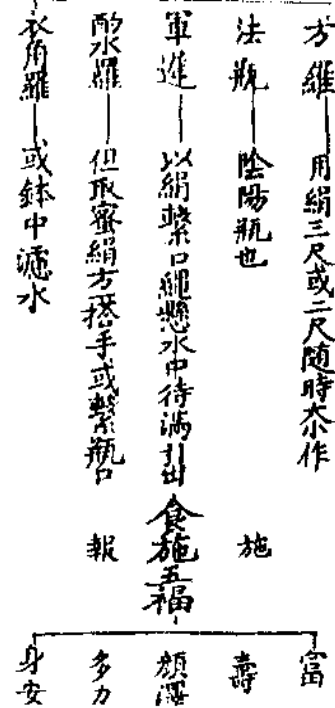 方羅 用絹三尺或二尺随時大小作
法瓶 陰陽瓶也
軍遲 以絹繫口繩懸水中待滿引出
酌水羅 但取密絹方一搭手或繫瓶口
衣角羅 或鉢中濾水
施
食施五福
報
富
壽
顏澤
多力
身安